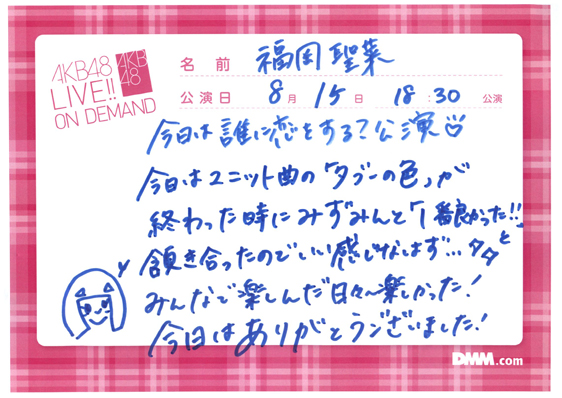 AKB48
LIVE!!
ON DEMAND
AKB
48
名前 福岡聖菜
公演日 8月15日 18:30 公演
今日は誰に恋をする?公演
今日はユニット曲の「タブーの色」が
終わった時にみずみんと「1番良かった!!」と
頷き合ったのでいい感じなはず…
みんなで楽しんだ日々〜楽しかった!
今日はありがとうございました!
DMM.com